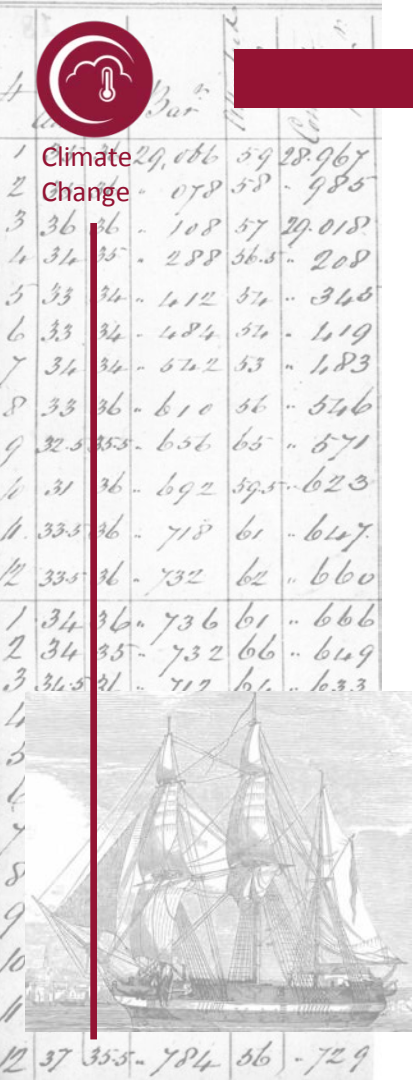 Bar
Climate
Change
1 29,066 59 28.967
2 " 078 58 " 985
3 36 36 " 108 57 29.018
4 34 35 " 288 56.5 " 208
5 33 34 " 412 54 " 345
6 33 34 " 484 54 " 419
7 34 34 " 542 53 " 483
8 33 36 " 610 56 " 546
9 32.5 35.5 " 656 65 " 571
10 31 36 " 692 59.5 " 623
11 33.5 36 " 718 61 " 647
12 33.5 36 " 732 62 " 660
1 34 36 " 736 61 " 666
2 34 35 " 732 66 " 649
3 34.5 " 712 64 " 633
4
5
6
7
8
9
10
11
12 37 35.5 " 784 56 " 729